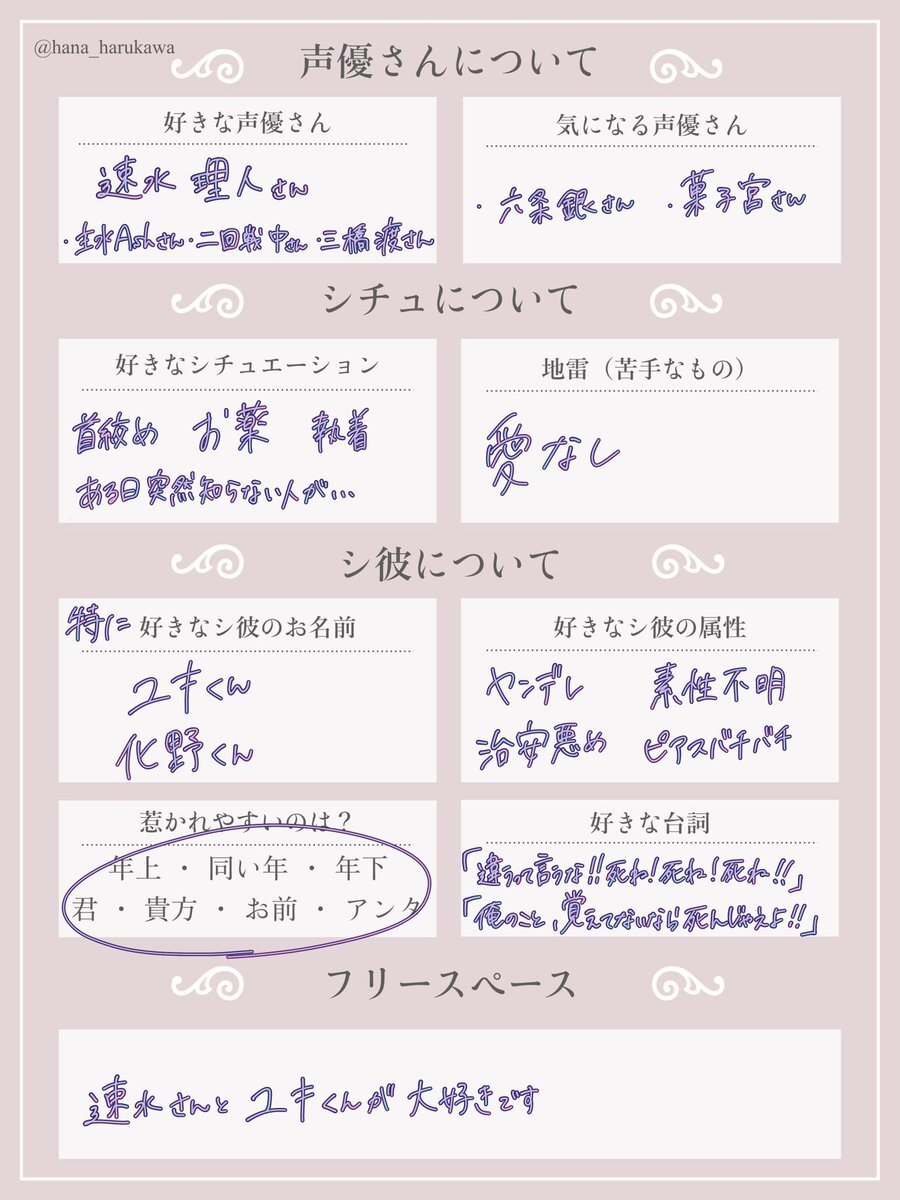 @hana_harukawa
声優さんについて
好きな声優さん
速水 理人さん
・主水Ashさん・二回戦中さん・三橋渡さん
気になる声優さん
・六条銀さん ・菓子宮さん
シチュについて
好きなシチュエーション
首絞め お薬 執着
ある日突然知らない人が…
地雷（苦手なもの）
愛なし
シ彼について
特に好きなシ彼のお名前
ユキくん
化野くん
好きなシ彼の属性
ヤンデレ 素性不明
治安悪め ピアスバチバチ
惹かれやすいのは？
年上 ・ 同い年 ・ 年下
君 ・ 貴方 ・ お前 ・ アンタ
好きな台詞
「違うって言うな!!死ね!死ね!死ね!!」
「俺のこと、覚えてないなら死んじゃえよ!!」
フリースペース
速水さんとユキくんが大好きです